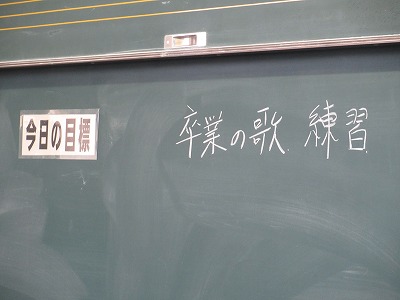 今日の目標
卒業の歌 練習